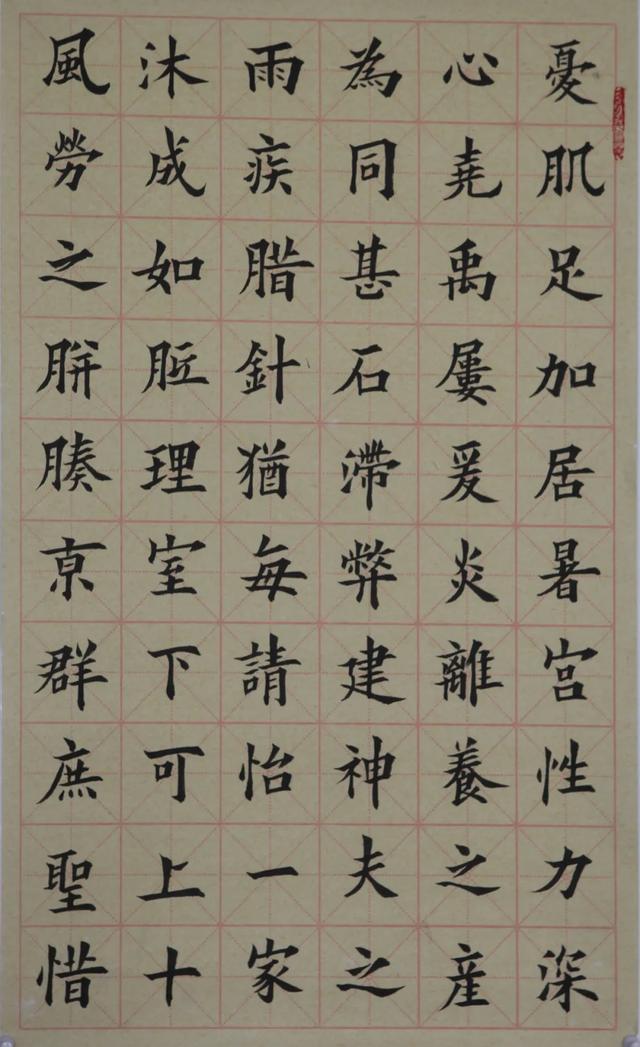 風沐雨為心憂
勞成疾同堯肌
之如腊甚禹足
胼胝針石屢加
腠理猶滯爰居
亰室每弊炎暑
群下請建離宮
庶可怡神養性
聖上一夫之力
惜十家之産深